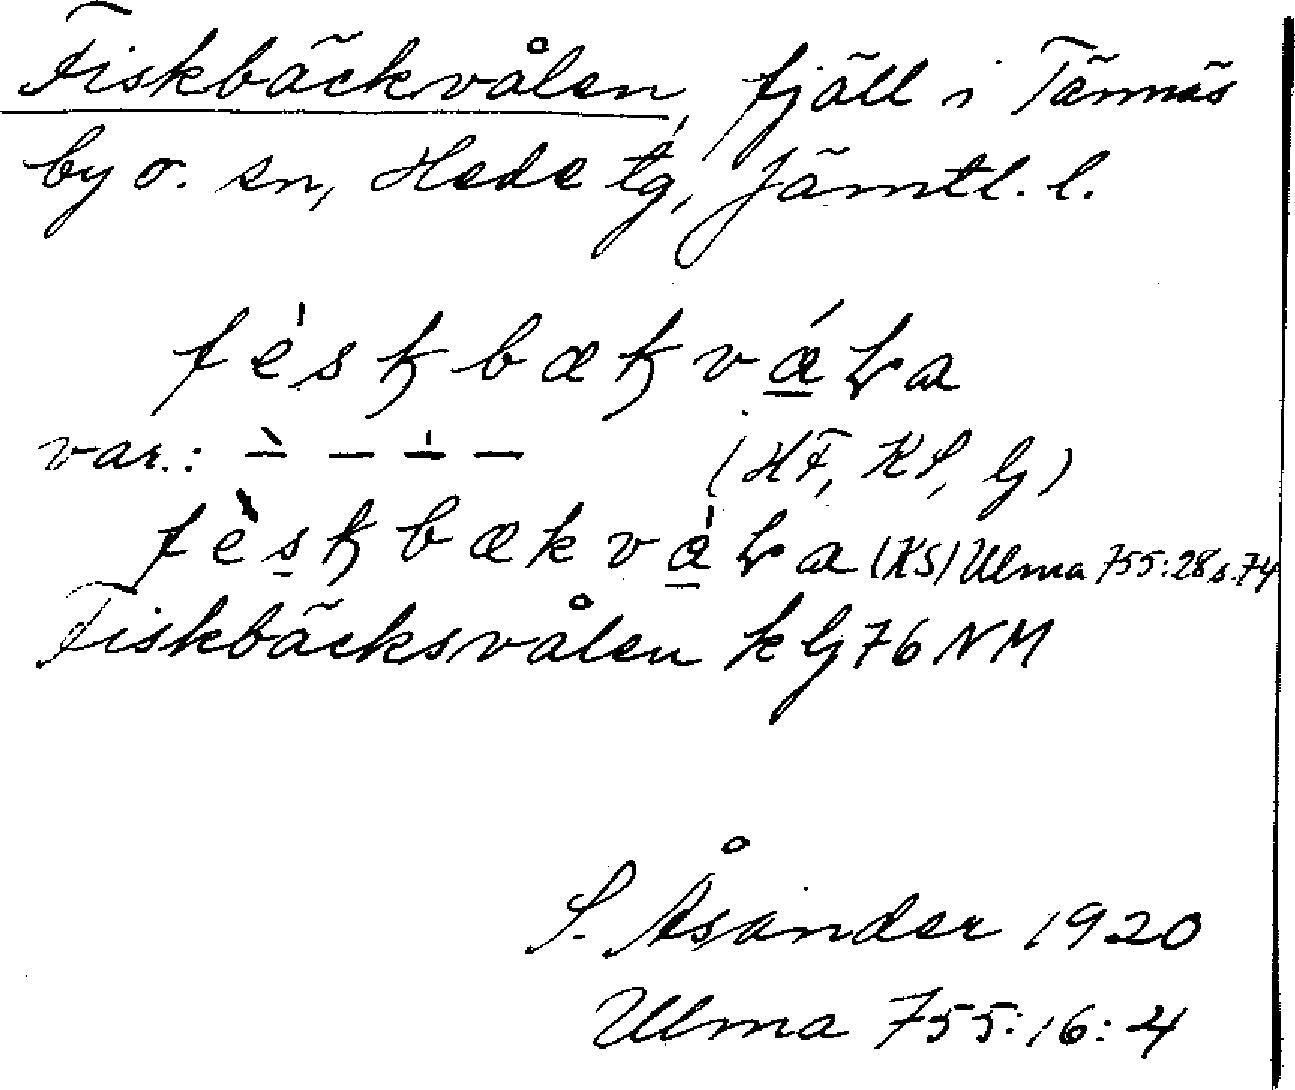 Fiskbäckvålen, fjäll i Tännäs
by o. sn, Hede tg, Jämtl. l.
fèskbækvǽɽa
var.: – – – – (HF, KS, G)
fèskbækvæɽa (KS) Ulma 755:28 s. 74
Fiskbäcksvålen k G 76 NM
S. Åsander 1920
Ulma 755:16:4